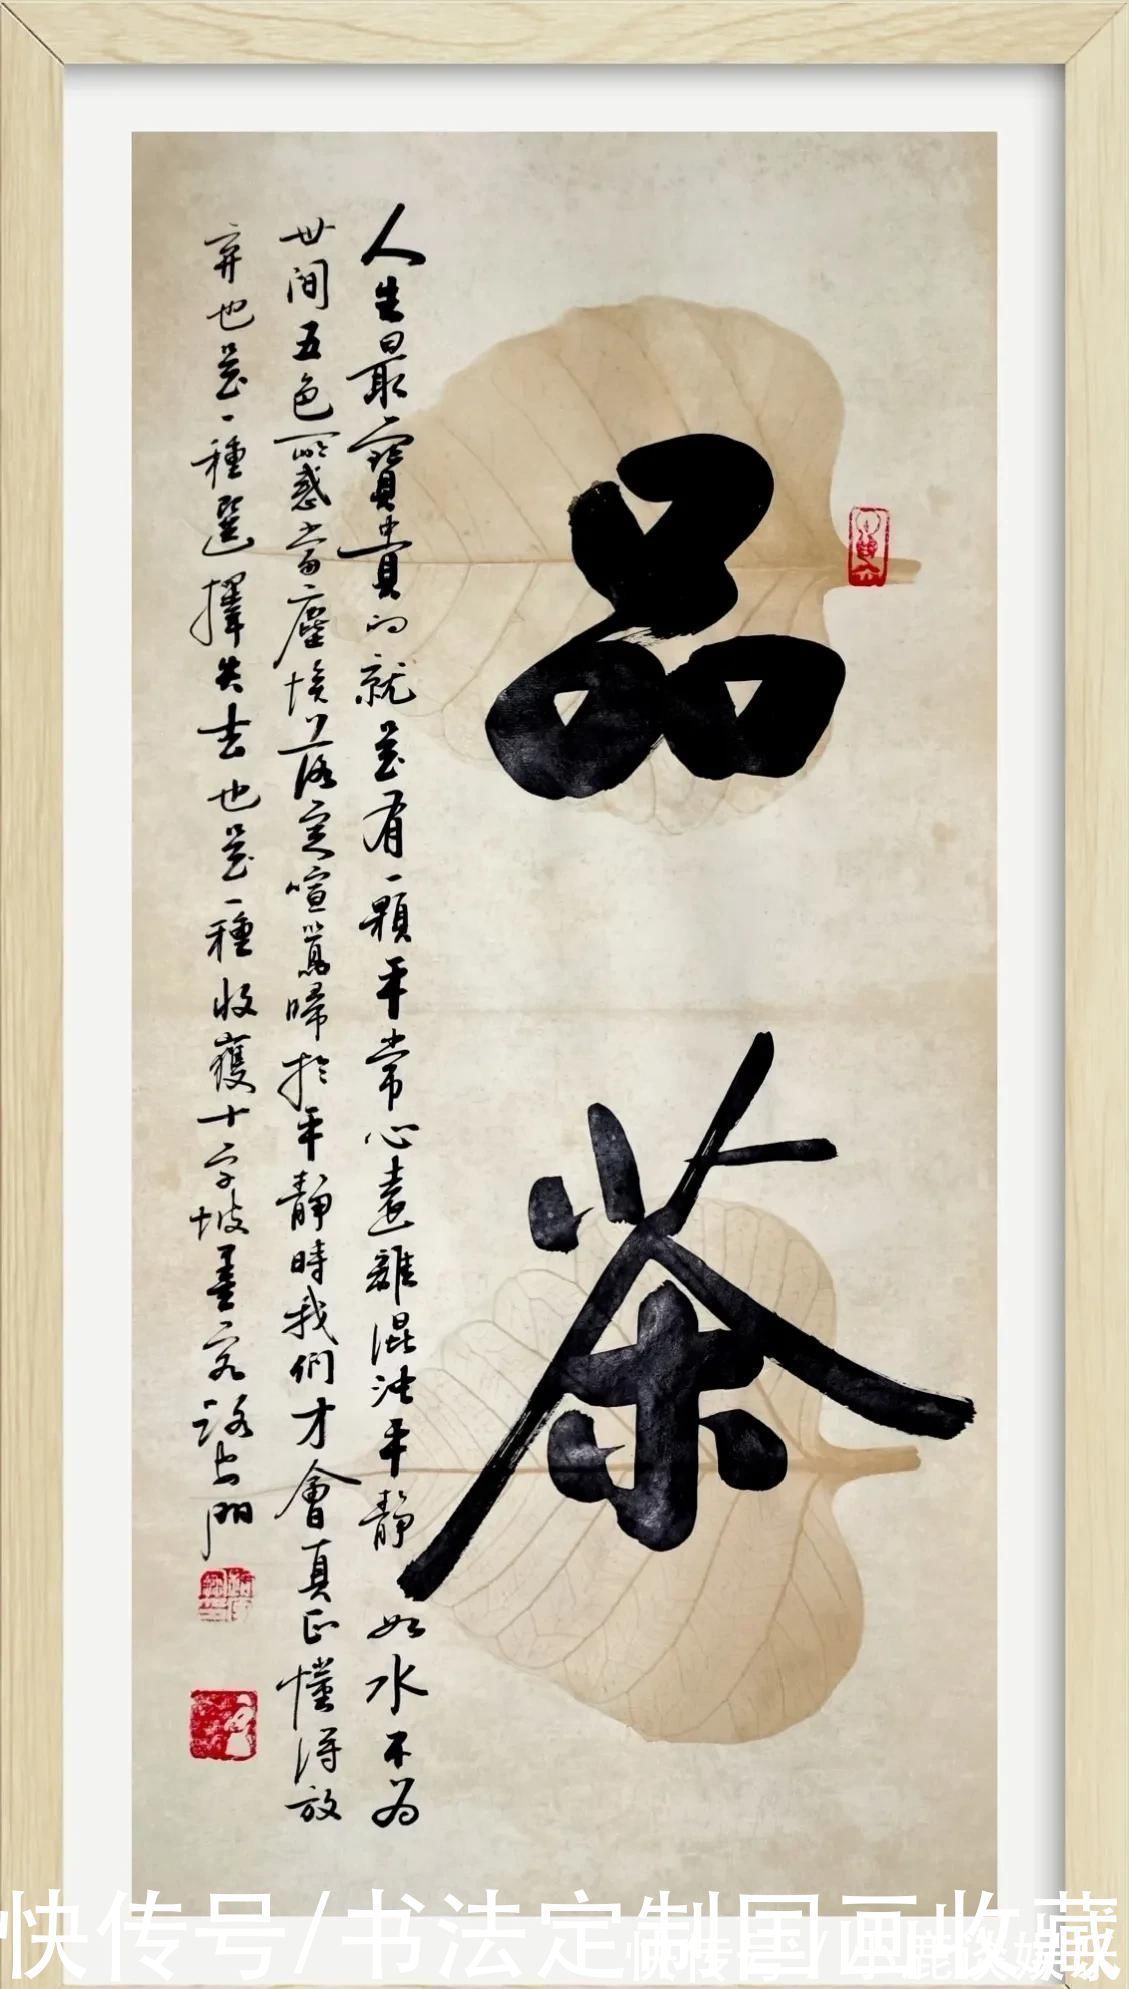 品茶
人生最寶貴的就是有一顆平常心遠離混沌平靜如水不為
世间五色所惑當塵埃落定喧嚣歸於平靜時我們才會真正懂得放
弃也是一種選擇失去也是一種收獲十字坡墨客路
快传号/书法定制国画收藏